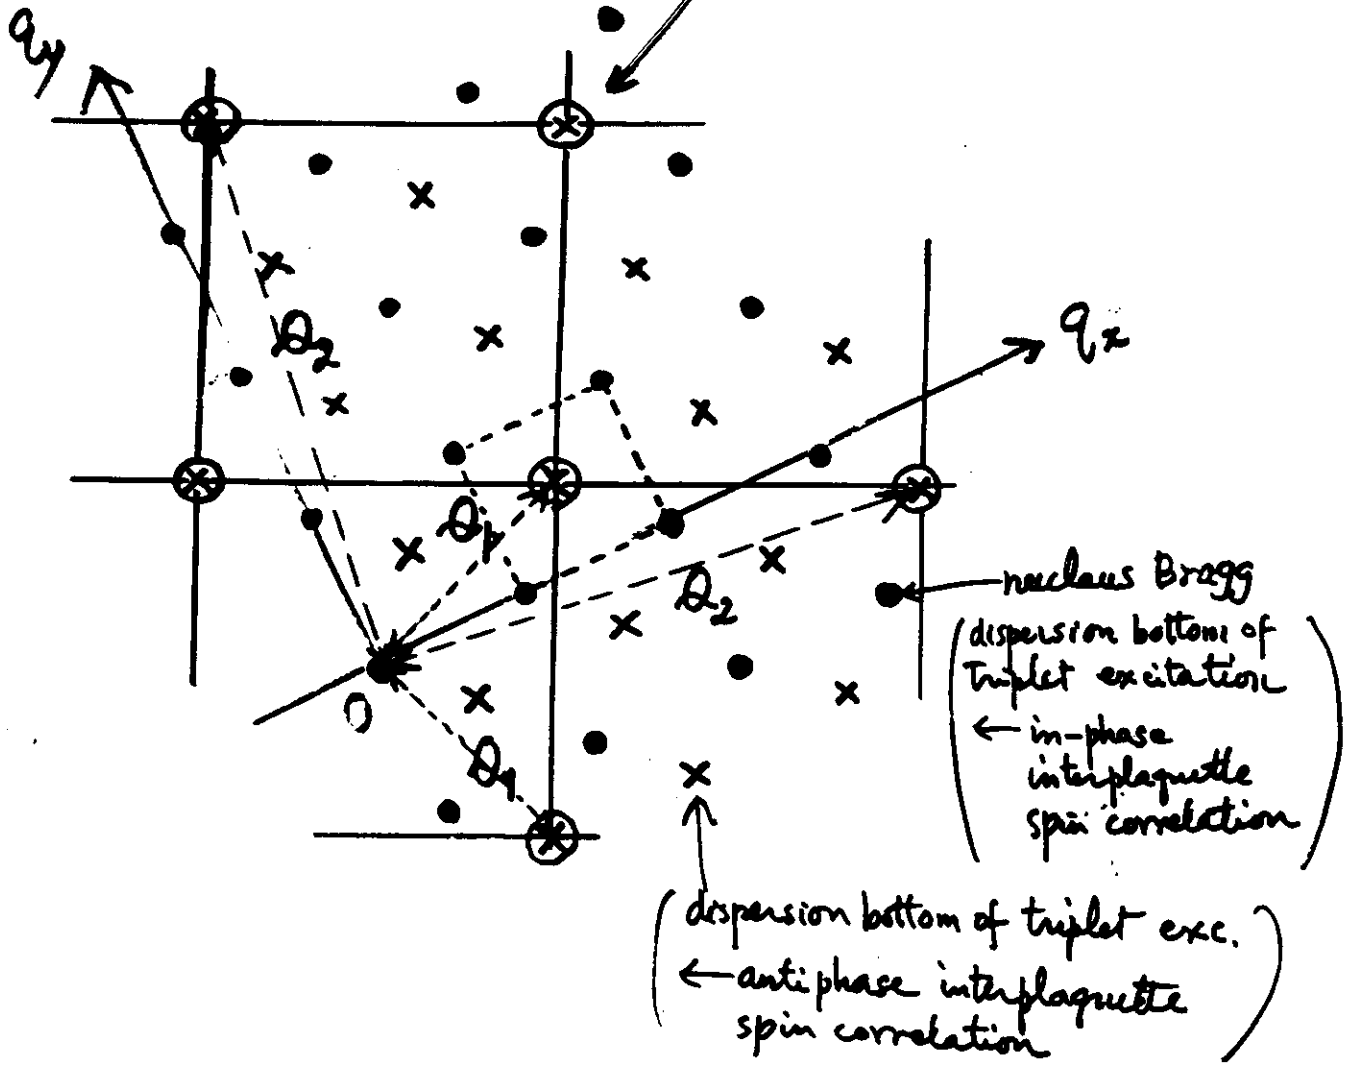 qy
Q2
qx
Q1
Q2
O
Q1
nucleus Bragg
(dispersion bottom of
triplet excitation
← in-phase
interplaquette
spin correlation)
(dispersion bottom of triplet exc.
← antiphase interplaquette
spin correlation)